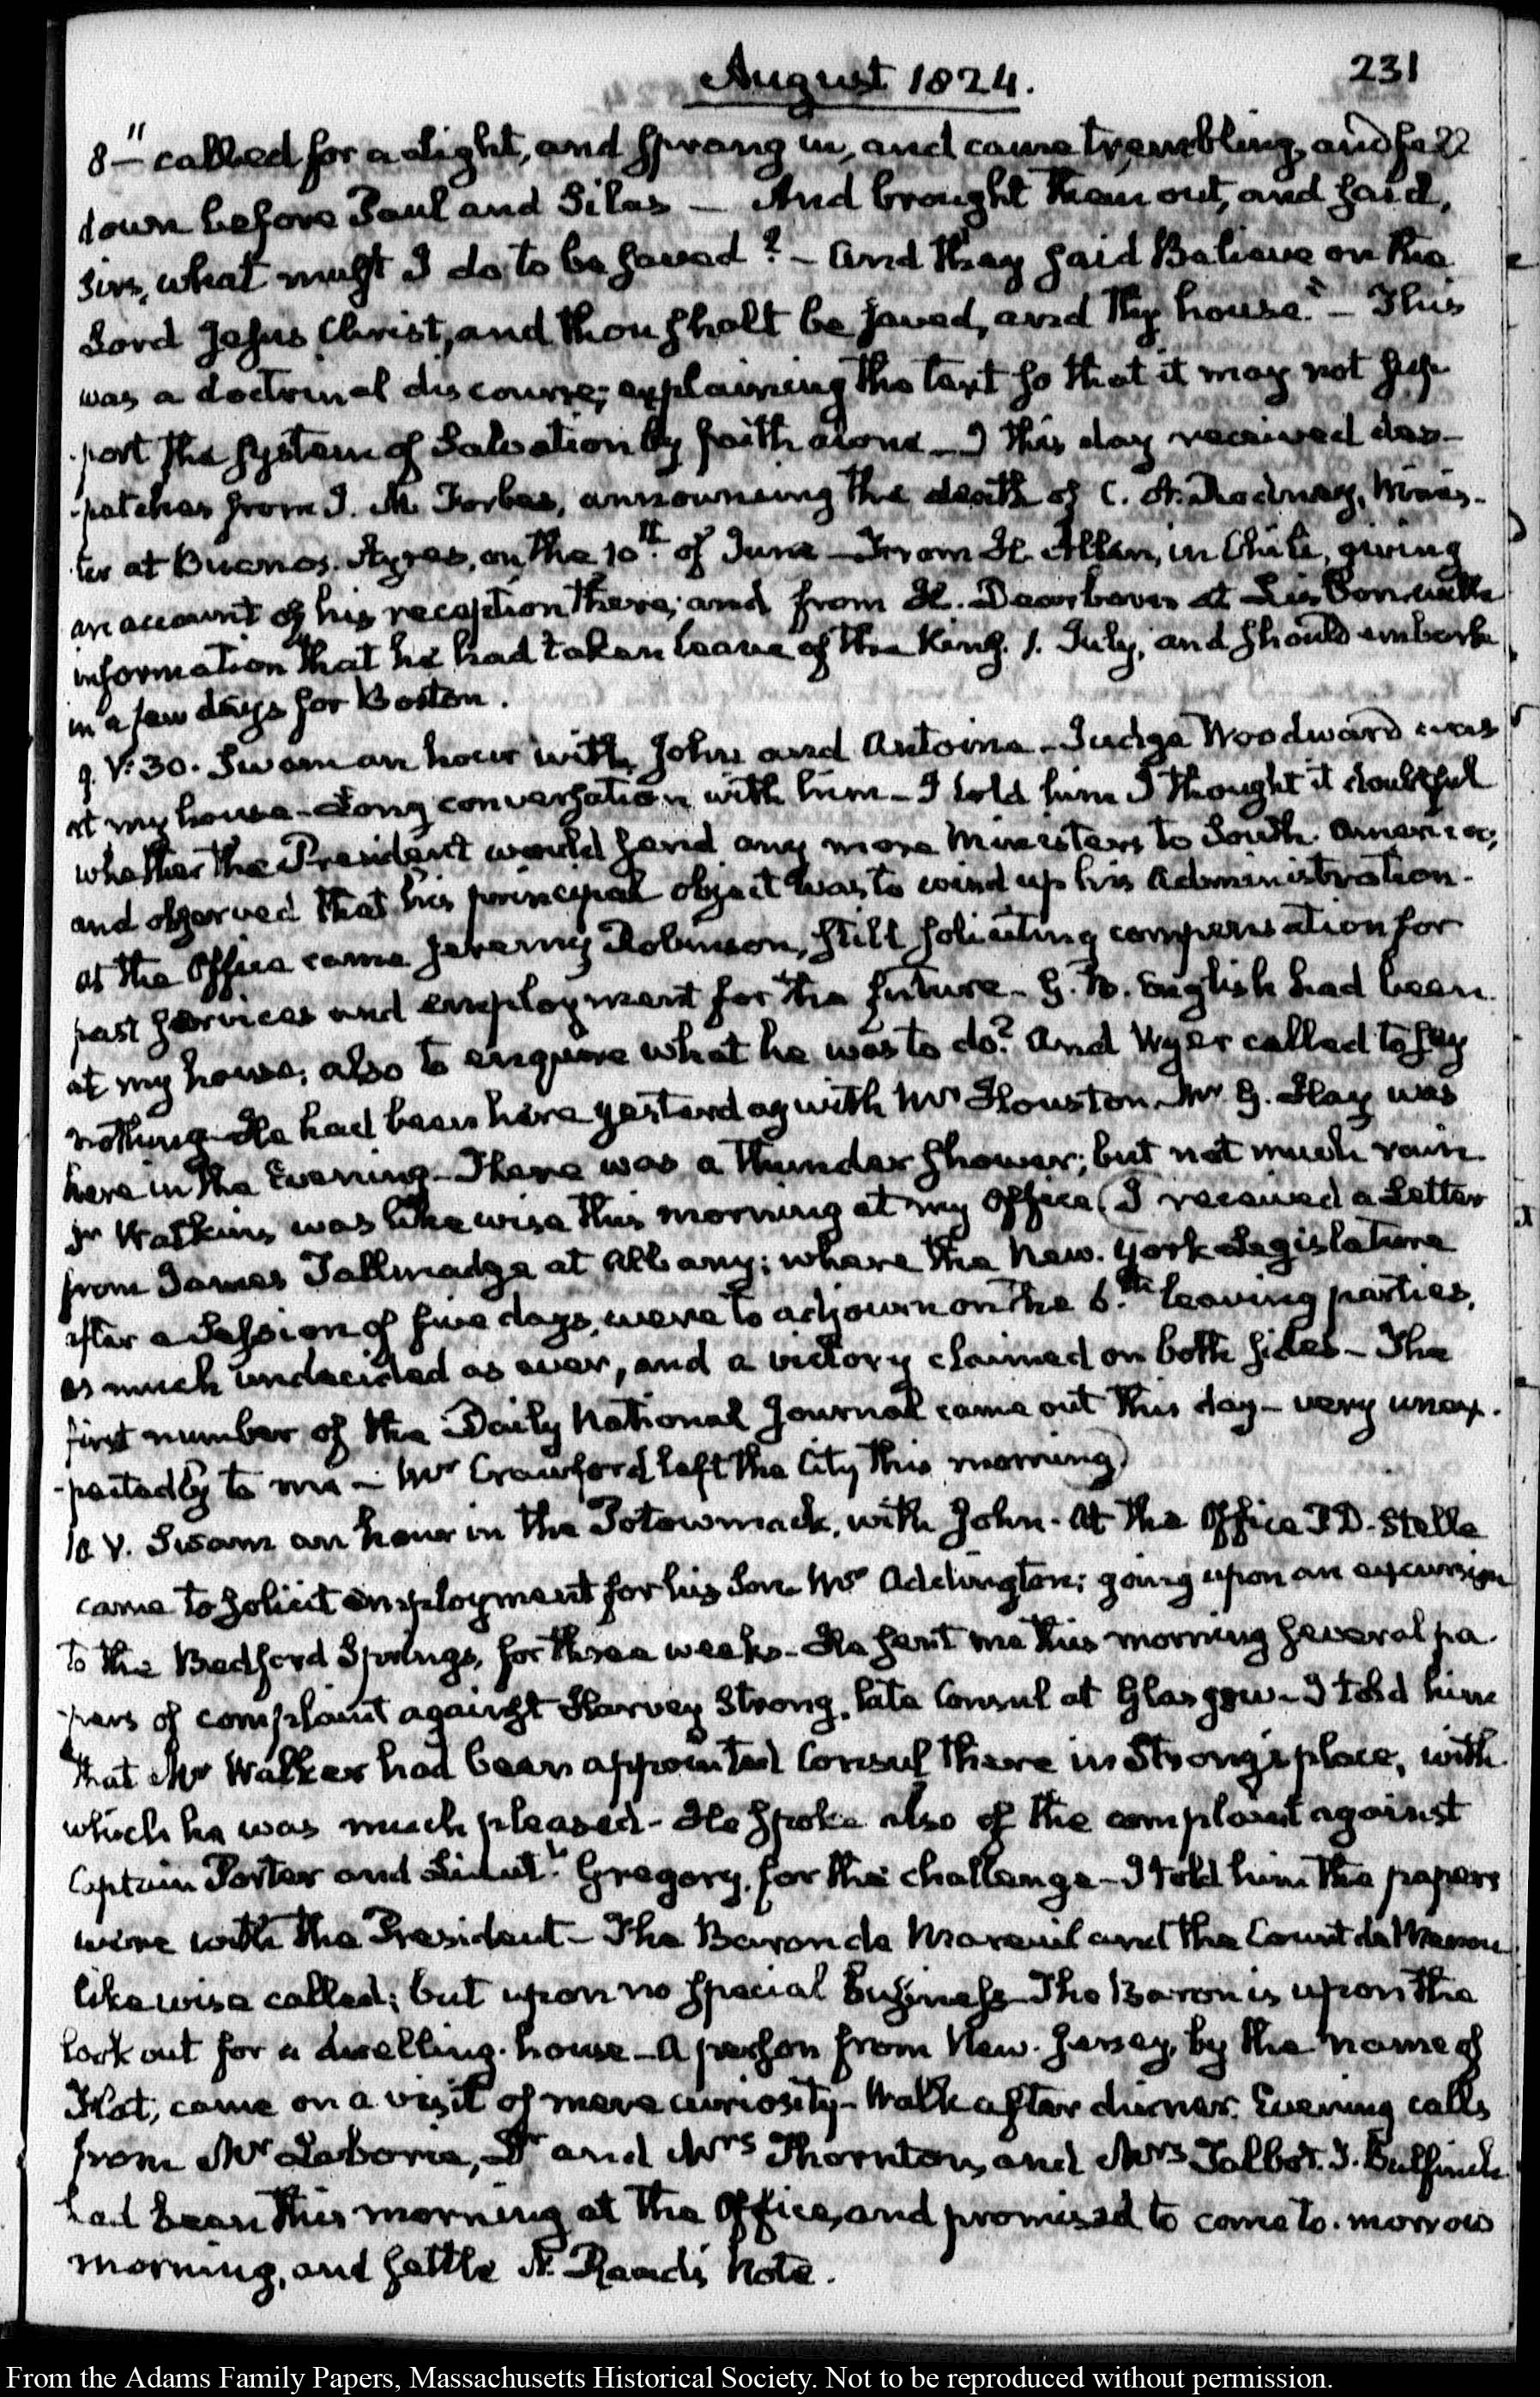 August 1824.
231
8–" called for a light, and sprang in, and came trembling, and fell
down before Paul and Silas — And brought them out, and said,
Sirs, what must I do to be saved? – And they said Believe on the
Lord Jesus Christ, and thou shalt be saved, and thy house." – This
was a doctrinal discourse; explaining the text so that it may not sup-
-port the system of Salvation by faith alone – I this day received des-
-patches from J. M. Forbes, announcing the death of C. A. Rodney, Minis-
ter at Buenos. Ayres, on the 10th. of June – From H. Allen, in Chile, giving
an account of his reception there; and from H. Dearborn at Lisbon with
information that he had taken leave of the King. 1. July, and should embark
in a few days for Boston.
9. V: 30. Swam an hour with John and Antoine – Judge Woodward was
at my house – Long conversation with him – I told him I thought it doubtful
whether the President would send any more Ministers to South. America;
and observed that his principal object was to wind up his Administration.
at the Office came Jeremy Robinson, still soliciting compensation for
past services and employment for the future – G. B. English had been
at my house; also to enquire what he was to do? And Wyer called to say
nothing – He had been here yesterday with Mr Houston – Mr. G. Hay was
here in the Evening – There was a thunder shower; but not much rain.
Dr Watkins was likewise this morning at my Office (I received a Letter
from James Tallmadge at Albany; where the New. York Legislature
after a Session of five days, were to adjourn on the 6.th leaving parties,
as much undecided as ever, and a victory claimed on both sides – The
first number of the Daily National Journal came out this day – very unex-
-pectedly to me – Mr Crawford left the City this morning)
10. V. Swam an hour in the Potowmack, with John. At the Office P. D. Stelle
came to solicit employment for his Son. Mr Addington; going upon an excursion
to the Bedford Springs, for three weeks – He sent me this morning several pa-
-pers of complaint against Harvey Strong, late Consul at Glasgow – I told him
that Mr Walker had been appointed Consul there in Strong's place, with
which he was much pleased – He spoke also of the complaint against
Captain Porter and Lieut.t Gregory, for the challenge – I told him the papers
were with the President – The Baron de Mareuil and the Count de Menou
likewise called; but upon no special business – The Baron is upon the
look out for a dwelling. house – A person from New. Jersey, by the name of
came on a visit of mere curiosity – Walk after dinner. Evening calls
from Mr Laborie, Dr and Mrs Thornton, and Mrs Talbot. T. Bulfinch
had been this morning at the Office, and promised to come to. morrow
morning, and settle Note.
From the Adams Family Papers, Massachusetts Historical Society. Not to be reproduced without permission.